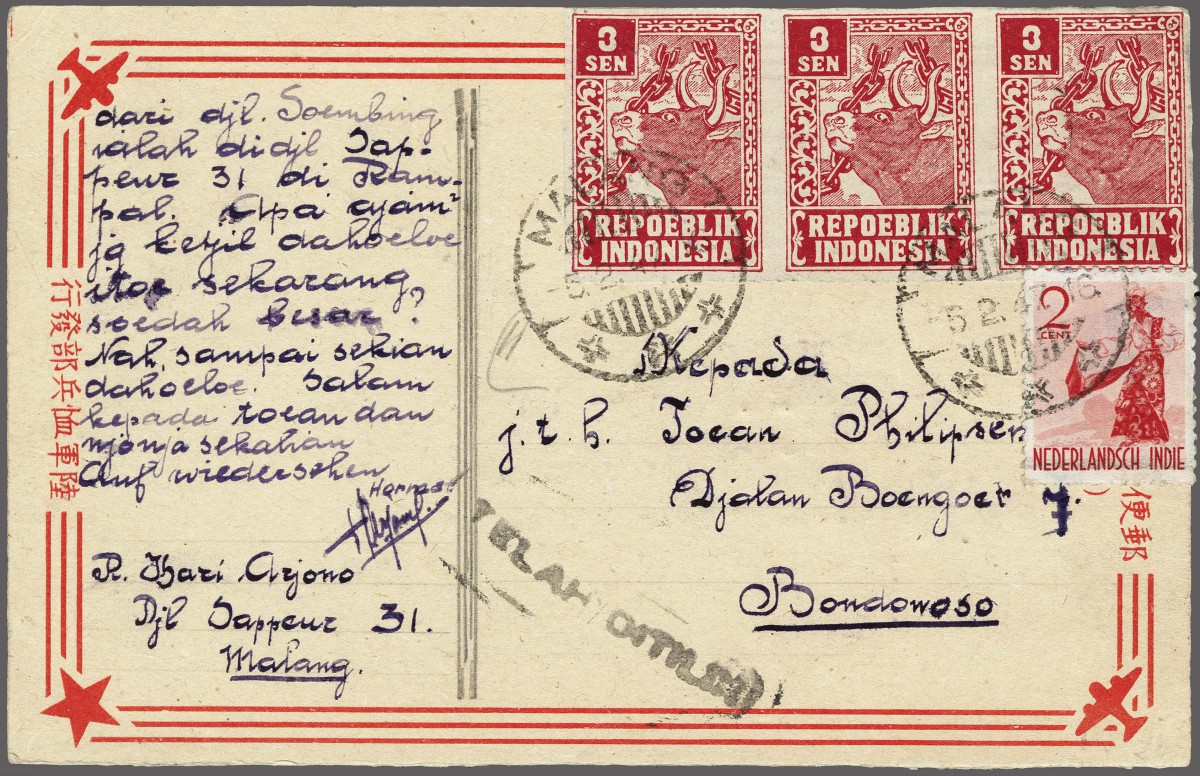 dari djl. Soembing
ialah di djl Sap-
peur 31 di Ram-
pal. Apa ajam²
jg ketjil dahoeloe
itoe sekarang
soedah besar?
Nah, sampai sekian
dahoeloe. Salam
kepada toean dan
njonja sekalian
Auf wiedersehen
Hormat
R. Hari Arjono
Djl Sappeur 31.
Malang.
陸軍恤兵部發行
3
SEN
REPOEBLIK
INDONESIA
3
SEN
REPOEBLIK
INDONESIA
3
SEN
REPOEBLIK
INDONESIA
2
CENT
NEDERLANDSCH INDIE
MALANG
5.2.47.16
Kepada
j.t.h. Toean Philipsen
Djalan Boengoer 7.
Bondowoso
TELAH DITILIK
郵便